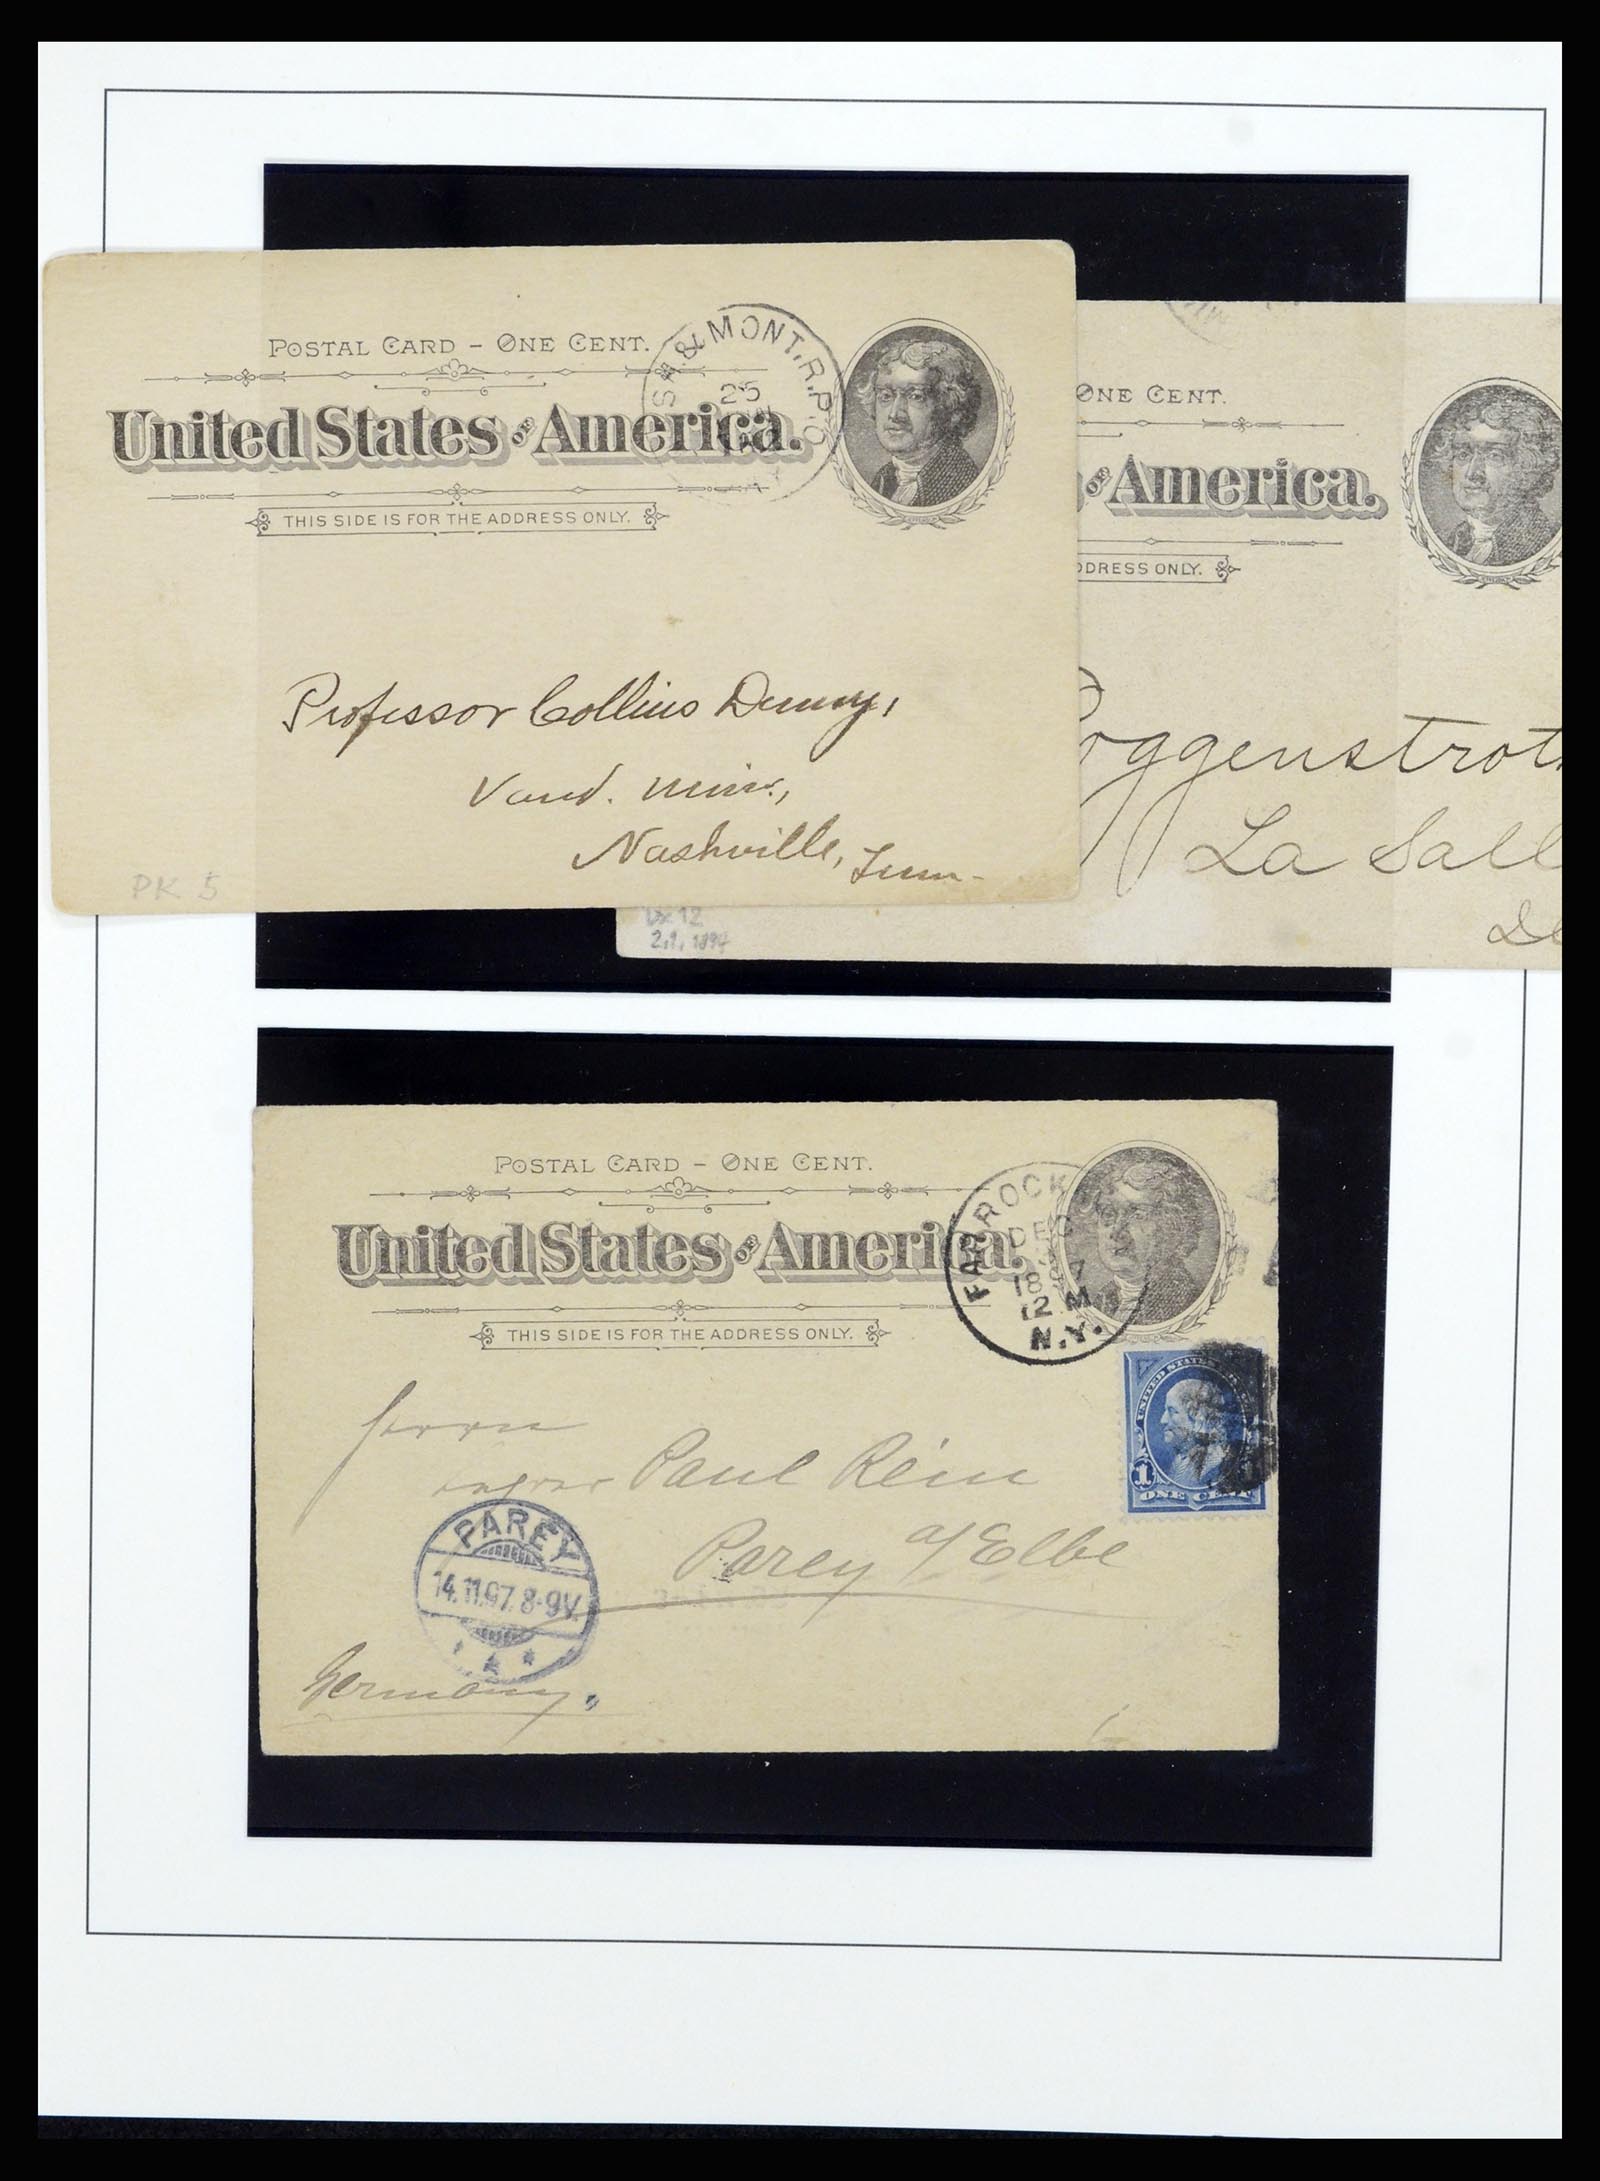 POSTAL CARD – ONE CENT.
United States of America.
THIS SIDE IS FOR THE ADDRESS ONLY.
& MONT. R.P.O.
25
Professor Collins Denny,
Vand. Univ.,
Nashville, Tenn.
PK 5
ONE CENT.
OF America.
DDRESS ONLY.
Poggenstrot
La Sall
Dx 12
2.1.1894
POSTAL CARD – ONE CENT.
United States of America.
THIS SIDE IS FOR THE ADDRESS ONLY.
FAR ROCK
DEC
12 M
N.Y.
UNITED STATES
1
ONE CENT
Herrn
Paul Rein
Parey a/Elbe
PAREY
14.11.97. 8-9V.
* * *
Germany.